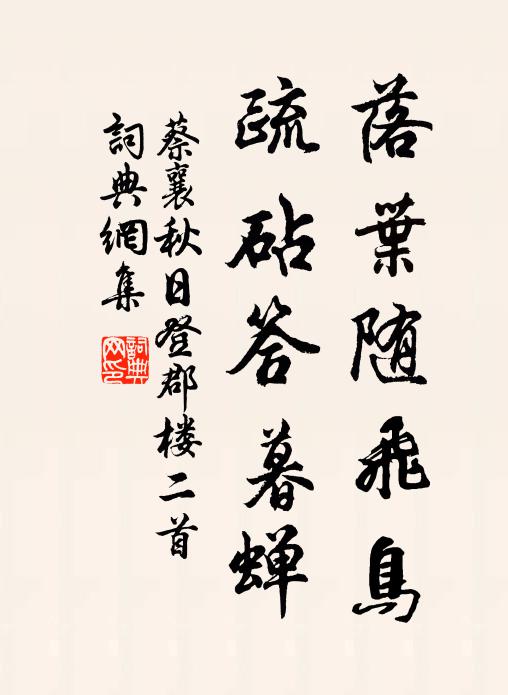 落葉随飛鳥
疏砧答暮蝉
蔡襄秋日登郡楼二首
詞典網集
詞典網印